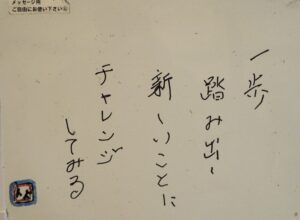 メッセージ用
ご自由にお使い下さい
一歩
踏み出し
新しいことに
チャレンジ
してみる